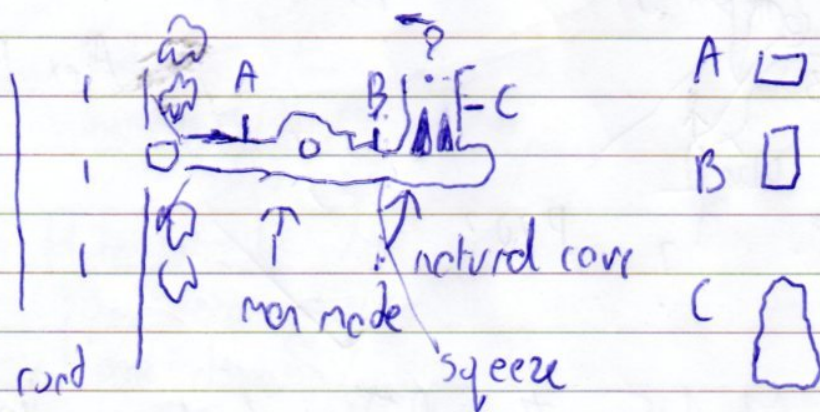 ?
A
B
C
A
B
natural cave
man made
C
road
squeeze